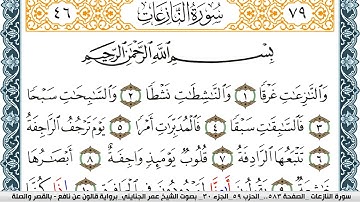 ٧٩ سُورَةُ النَّازِعَاتِ ٤٦
بِسْمِ اللَّهِ الرَّحْمَٰنِ الرَّحِيمِ
وَالنَّٰزِعَٰتِ غَرْقٗا ١ وَالنَّٰشِطَٰتِ نَشْطٗا ٢ وَالسَّٰبِحَٰتِ سَبْحٗا
٣ فَالسَّٰبِقَٰتِ سَبْقٗا ٤ فَالْمُدَبِّرَٰتِ أَمْرٗا ٥ يَوْمَ تَرْجُفُ الرَّاجِفَةُ
٦ تَتْبَعُهَا الرَّادِفَةُ ٧ قُلُوبٞ يَوْمَئِذٖ وَاجِفَةٌ ٨ أَبْصَٰرُهَا
خَٰشِعَةٞ ٩ يَقُولُونَ
سورة النازعات . الصفحة ٥٨٣ . الحزب ٥٩ . الجزء ٣٠ . بصوت الشيخ عمر الجنايني . برواية قالون عن نافع - بالقصر والصلة